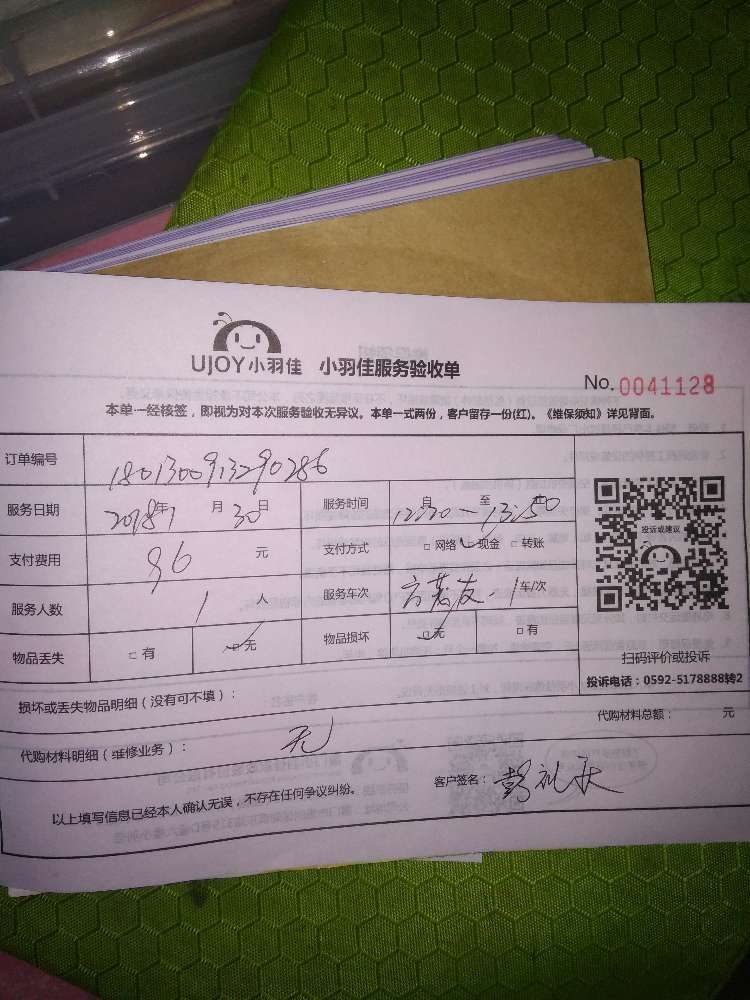 UJOY小羽佳 小羽佳服务验收单
No. 0041128
本单一经核签，即视为对本次服务验收无异议。本单一式两份，客户留存一份(红)。《维保须知》详见背面。
订单编号 1801300913290286
服务日期 2018年1月30日 服务时间 自12:20至13:50
支付费用 96元 支付方式 □网络 ☑现金 □转账
投诉或建议
服务人数 1人 服务车次 1车/次
物品丢失 □有 ☑无 物品损坏 ☑无 □有
扫码评价或投诉
投诉电话：0592-5178888转2
损坏或丢失物品明细（没有可不填）：
代购材料总额： 元
代购材料明细（维修业务）： 无
以上填写信息已经本人确认无误，不存在任何争议纠纷。 客户签名：